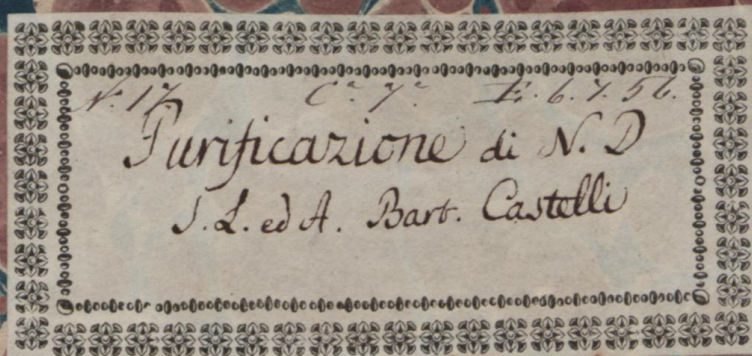 N.° 17 C.a 7.a E. 6. 7. 56.
Purificazione di N. D
S. L. ed A. Bart. Castelli